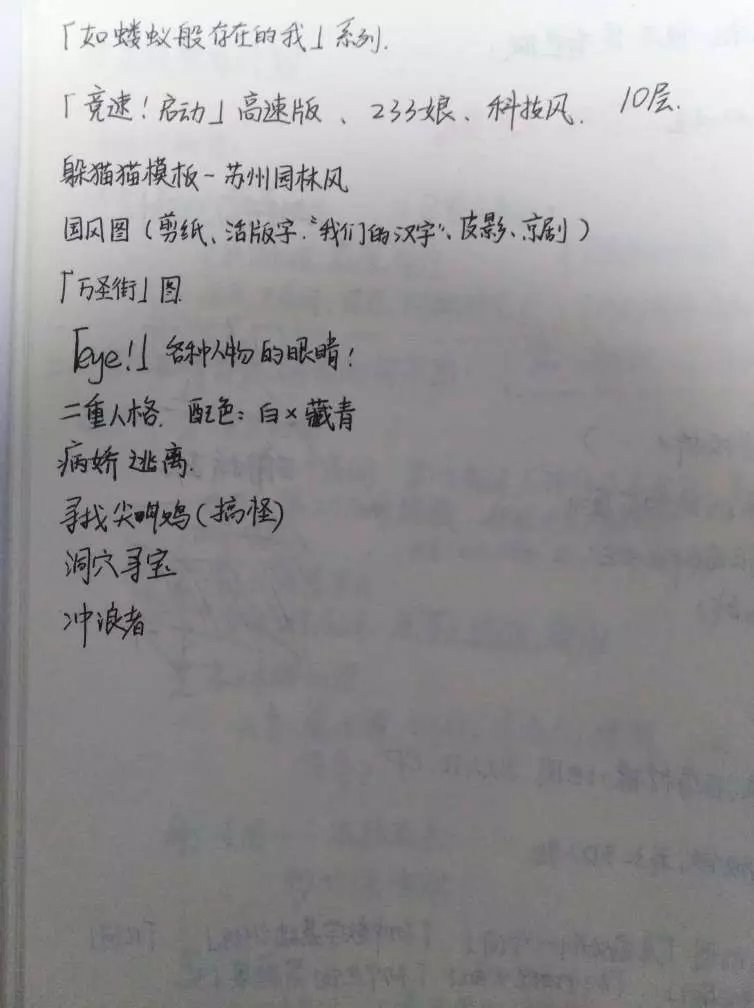 「如蝼蚁般存在的我」系列.
「竞速！启动」高速版、233娘、科技风. 10层.
躲猫猫模板-苏州园林风
国风图（剪纸、活版字."我们的汉字"、皮影、京剧）
「万圣街」图.
「eye!」各种人物的眼睛！
二重人格. 配色：白×藏青
病娇逃离.
寻找尖叫鸡(搞怪)
洞穴寻宝
冲浪者